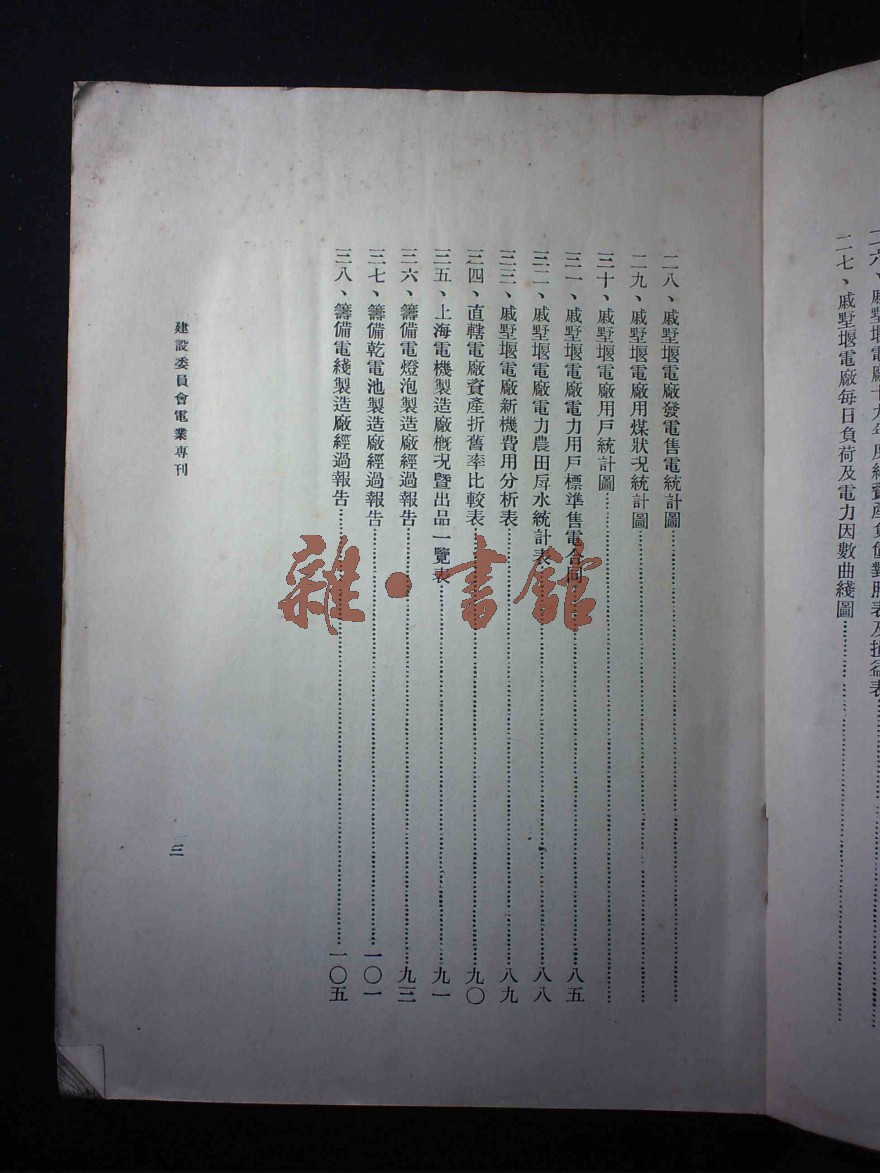 二六、戚墅堰電廠十九年度總資產負債對照表及損益表
二七、戚墅堰電廠每日負荷及電力因數曲綫圖
二八、戚墅堰電廠發電售電統計圖
二九、戚墅堰電廠用煤狀况統計圖
三十、戚墅堰電廠用戶統計圖
三一、戚墅堰電廠電力用戶標準售電合同 八五
三二、戚墅堰電廠電力農田戽水統計表 八八
三三、戚墅堰電廠新機費用分析表 八九
三四、直轄電廠資產折舊率比較表 九〇
三五、上海電機製造廠概况暨出品一覽表 九一
三六、籌備電燈泡製造廠經過報告 九三
三七、籌備乾電池製造廠經過報告 一〇一
三八、籌備電綫製造廠經過報告 一〇五
建設委員會電業專刊 三
雜·書館